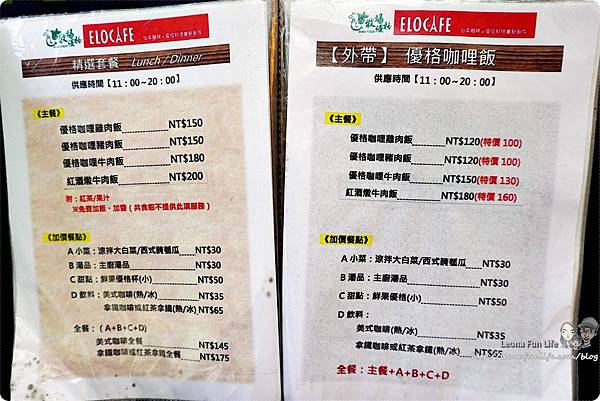 ELOCAFE
精選套餐 Lunch / Dinner
供應時間【11:00~20:00】
《主餐》
優格咖哩雞肉飯 NT$150
優格咖哩豬肉飯 NT$150
優格咖哩牛肉飯 NT$180
紅酒燉牛肉飯 NT$200
附:紅茶/果汁
※免費加飯、加醬(共食恕不提供此項服務)
《加價餐點》
A 小菜:涼拌大白菜/西式醃瓠瓜 NT$30
B 湯品:主廚湯品 NT$30
C 甜點:鮮果優格杯(小) NT$50
D 飲料:美式咖啡(熱/冰) NT$35
拿鐵咖啡或紅茶拿鐵(熱/冰) NT$65
全餐:(A+B+C+D)
美式咖啡全餐 NT$145
拿鐵咖啡或紅茶拿鐵全餐 NT$175
ELOCAFE
【外帶】 優格咖哩飯
供應時間【11:00~20:00】
《主餐》
優格咖哩雞肉飯 NT$120(特價 100)
優格咖哩豬肉飯 NT$120(特價 100)
優格咖哩牛肉飯 NT$150(特價 130)
紅酒燉牛肉飯 NT$180(特價 160)
《加價餐點》
A 小菜:涼拌大白菜/西式醃瓠瓜 NT$30
B 湯品:主廚湯品 NT$30
C 甜點:鮮果優格(小) NT$50
D 飲料:
美式咖啡(熱/冰) NT$35
拿鐵咖啡或紅茶拿鐵(熱/冰) NT$65
全餐:主餐+A+B+C+D
Leona Fun Life